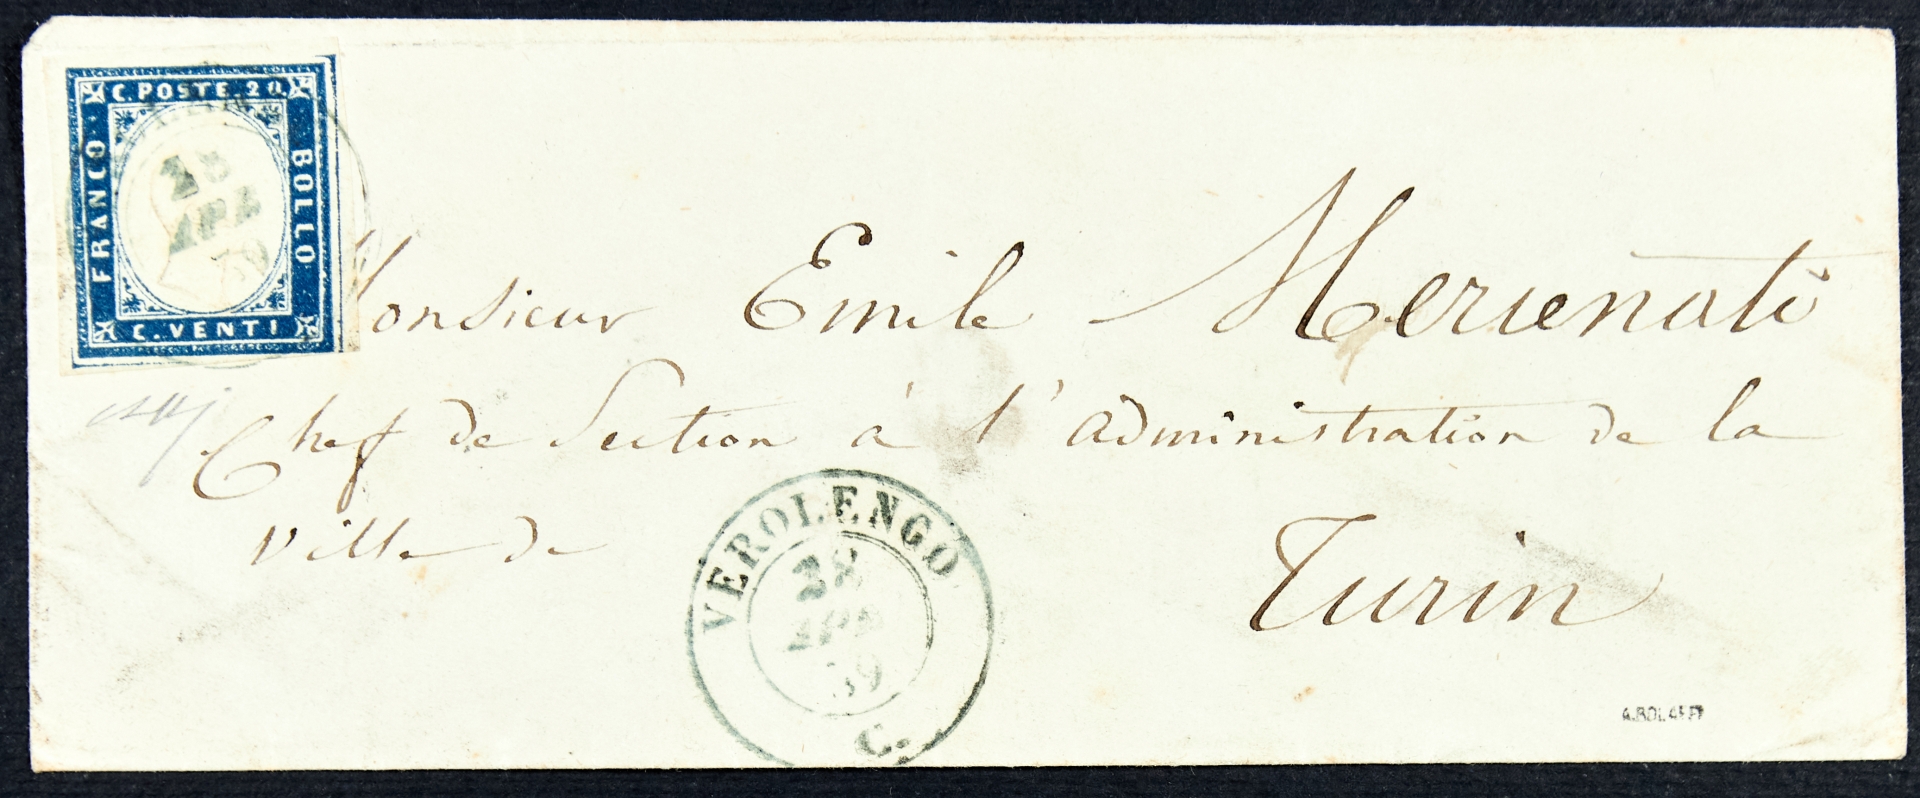 C. POSTE. 20.
FRANCO
BOLLO
C. VENTI
28
APR
59
Monsieur Emile Merienati
Chef de Section à l'administration de la
ville de
Turin
VEROLENGO
28
APR
59
C.
A.BOLAFFI